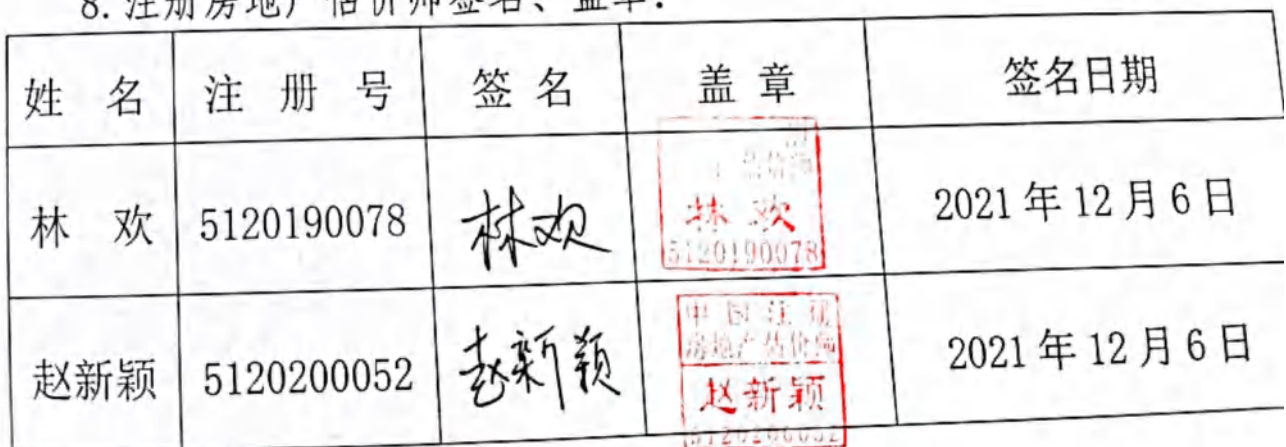 8.注册房地产估价师签名、盖章:
姓 名 注 册 号 签 名 盖 章 签名日期
林 欢 5120190078 林欢 林 欢 5120190078 2021年12月6日
中国注册
房地产估价师
赵新颖 5120200052 赵新颖 赵新颖 2021年12月6日